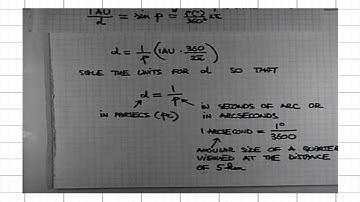 1AU/d = sin p ≅ p(°)/360° 2π
d = 1/p (1AU · 360/2π)
SCALE THE UNITS FOR d SO THAT
d = 1/p
IN PARSECS (pc)
IN SECONDS OF ARC OR
IN ARCSECONDS
1 ARCSECOND = 1°/3600
ANGULAR SIZE OF A QUARTER
VIEWED AT THE DISTANCE
OF 5 km